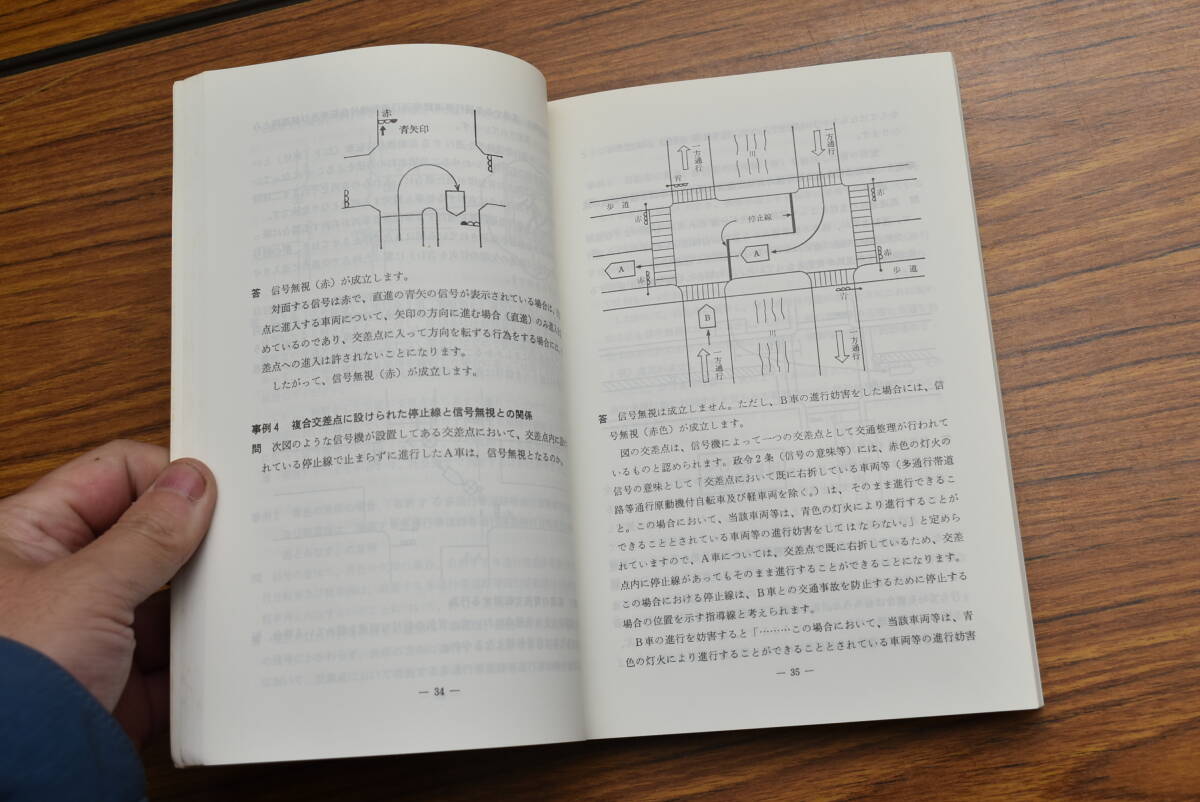 赤
青矢印
答 信号無視（赤）が成立します。
対面する信号は赤で、直進の青矢の信号が表示されている場合は、
点に進入する車両について、矢印の方向に進む場合（直進）のみ進入
めているのであり、交差点に入って方向を転ずる行為をする場合には、
差点への進入は許されないことになります。
したがって、信号無視（赤）が成立します。
事例4 複合交差点に設けられた停止線と信号無視との関係
問 次図のような信号機が設置してある交差点において、交差点内に設け
れている停止線で止まらずに進行したA車は、信号無視となるのか。
― 34 ―
一方通行
一方通行
青
歩道
赤
赤
停止線
A
A
赤
赤
歩道
青
B
一方通行
一方通行
答 信号無視は成立しません。ただし、B車の進行妨害をした場合には、信
号無視（赤色）が成立します。
図の交差点は、信号機によって一つの交差点として交通整理が行われて
いるものと認められます。政令2条（信号の意味等）には、赤色の灯火の
信号の意味として「交差点において既に右折している車両等（多通行帯道
路等通行原動機付自転車及び軽車両を除く。）は、そのまま進行できるこ
と。この場合において、当該車両等は、青色の灯火により進行することが
できることとされている車両等の進行妨害をしてはならない。」と定めら
れていますので、A車については、交差点で既に右折しているため、交差
点内に停止線があってもそのまま進行することができることになります。
この場合における停止線は、B車との交通事故を防止するために停止する
場合の位置を示す指導線と考えられます。
B車の進行を妨害すると「………この場合において、当該車両等は、青
色の灯火により進行することができることとされている車両等の進行妨害
― 35 ―